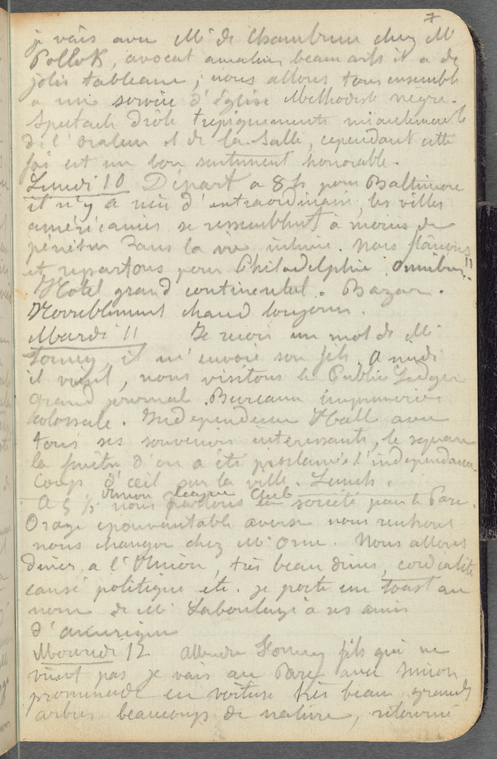 7
je vais avec Mr de Chambrun chez Mr
Pollok, avocat amateur beaux arts il a de
jolis tableaux, nous allons tous ensemble
a une soirée d'Eglise Methodiste nègre.
Spectacle drole trepignements miaulements
de l'orateur et de la salle, cependant cette
foi est un bon sentiment honorable.
Lundi 10 Départ a 8h pour Baltimore
il n'y a rien d'extraordinaire, les villes
américaines se ressemblent a moins de
pénétrer dans la vie intime. Nous flânons
et repartons pour Philadelphie. omnibus!!
Hotel grand continental. Bazar.
Horriblement chaud toujours.
Mardi 11 Je reçois un mot de Mr
Forney, il m'envoie son fils. A midi
il vient, nous visitons le Public Ledger
grand journal. Bureaux imprimerie
colossale. Independence Hall avec
tous ses souvenirs interessants, le square
la fenêtre d'ou a été proclamée l'independance
Coup d'œil sur la ville. Lunch.
Union league Club
A 5 ½ nous partons en société pour le Parc.
Orage epouvantable averse nous rentrons
nous changer chez Mr Orne. Nous allons
diner a l'Union, très beau diner, cordialité
causé politique etc. je porte un toast au
nom de Mr Laboulaye a ses amis
d'amerique
Mercredi 12 attendu Forney fils qui ne
vient pas je vais au Parc avec Simon
promenade en voiture très beau, grands
arbres beaucoup de nature, retourné